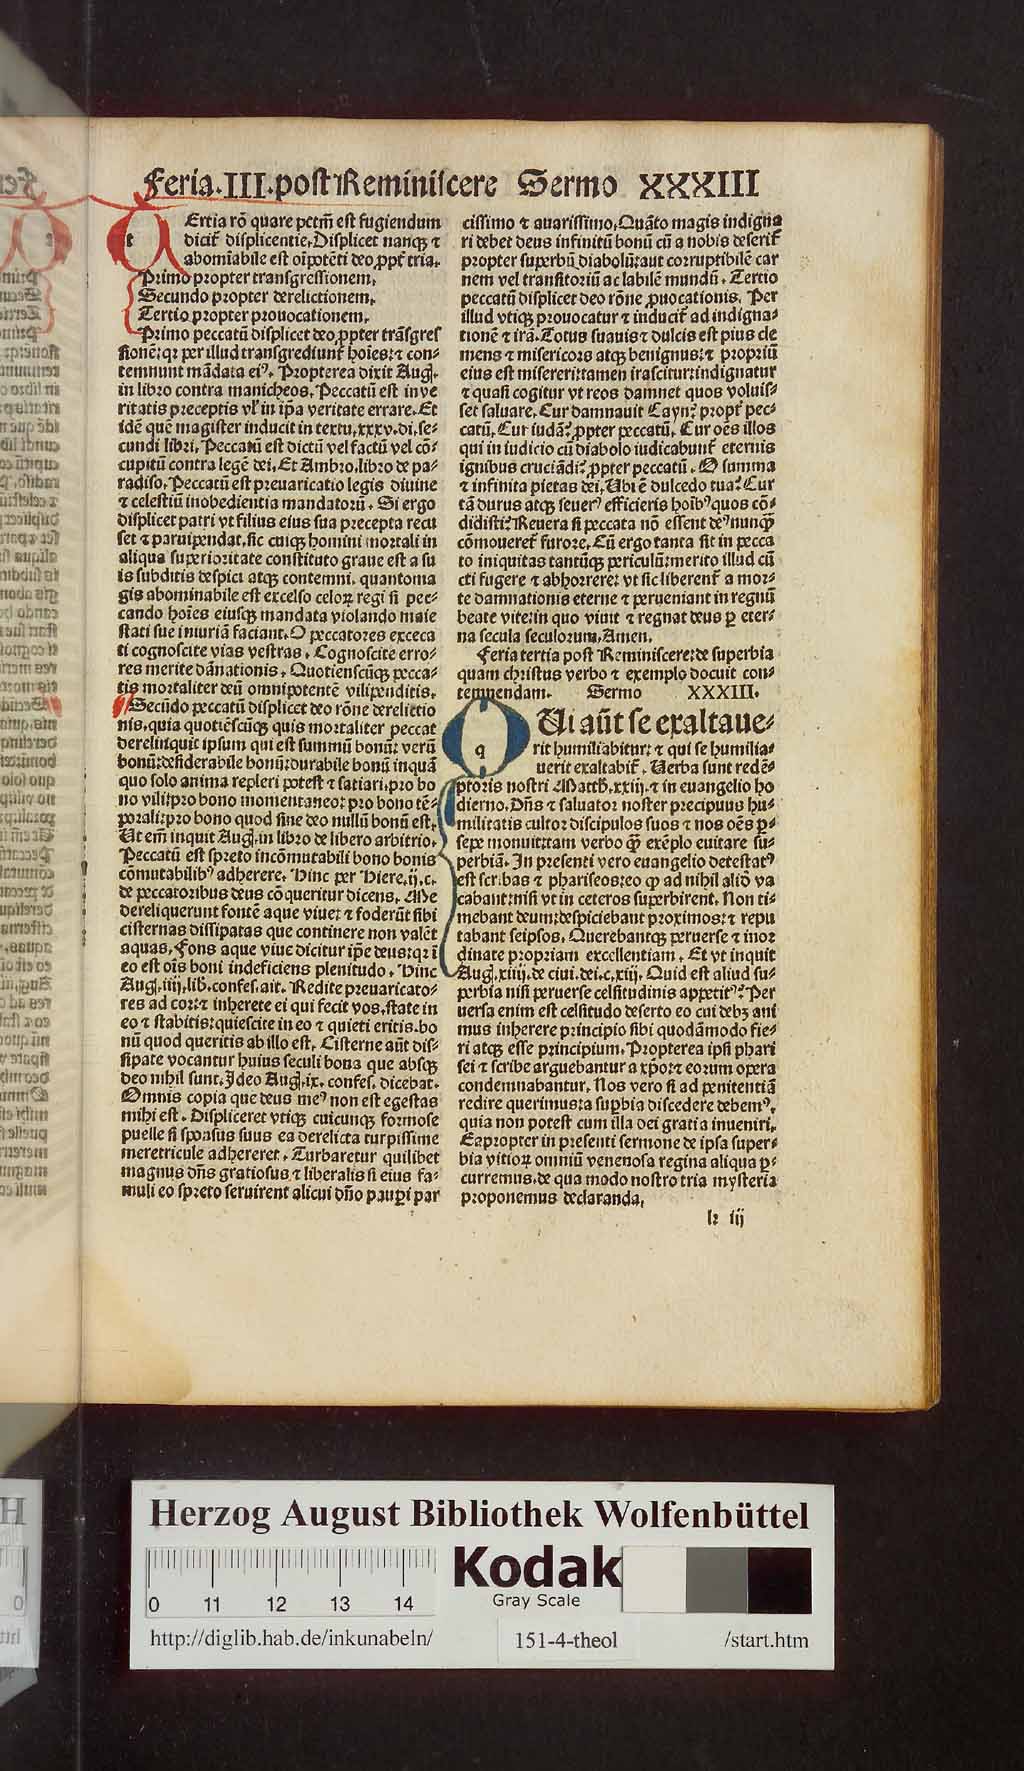 Feria.III.post Reminiscere Sermo XXXIII
tErtia rō quare pctm̄ est fugiendum
dicit̄ displicentie. Displicet nanqꝫ ⁊
abomīabile est oīpotēti deo ꝓpt̄ tria.
Primo propter transgressionem.
Secundo propter derelictionem.
Tertio propter prouocationem.
Primo peccatū displicet deo ꝓpter trāsgres
sionē: qꝛ per illud transgrediunt̄ hoīes: ⁊ con-
temnunt mādata eiꝰ. Propterea dixit Aug.
in libro contra manicheos. Peccatū est in ve
ritatis preceptis vl' in ip̄a veritate errare. Et
idē quē magister inducit in textu. xxxv. di. se-
cundi libri. Peccatū est dictū vel factū vel cō-
cupitū contra legē dei. Et Ambro. libro de pa-
radiso. Peccatū est preuaricatio legis diuine
⁊ celestiū inobedientia mandatorū. Si ergo
displicet patri vt filius eius sua precepta recu
set ⁊ paruipendat. sic cuiqꝫ homini mortali in
aliqua superioritate constituto graue est a su
is subditis despici atqꝫ contemni. quantoma
gis abominabile est excelso celoꝝ regi si pec-
cando hoīes eiusqꝫ mandata violando maie
stati sue iniuriā faciant. O peccatores exceca
ti cognoscite vias vestras. Cognoscite erro-
res merite dānationis. Quotienscūqꝫ pecca-
tis mortaliter deū omnipotentē vilipenditis.
Secūdo peccatū displicet deo rōne derelictio
nis. quia quotiēscūqꝫ quis mortaliter peccat
derelinquit ipsum qui est summū bonū: verū
bonū: desiderabile bonū: durabile bonū inquā
quo solo anima repleri potest ⁊ satiari. pro bo
no vili: pro bono momentaneo: pro bono tē-
porali: pro bono quod sine deo nullū bonū est.
Ut em̄ inquit Aug. in libro de libero arbitrio.
Peccatū est spreto incōmutabili bono bonis
cōmutabilibꝰ adherere. Hinc per Hiere. ij. c.
de peccatoribus deus cōqueritur dicens. Me
dereliquerunt fontē aque viue: ⁊ foderūt sibi
cisternas dissipatas que continere non valēt
aquas. Fons aque viue dicitur ip̄e deus: qꝛ ī
eo est oīs boni indeficiens plenitudo. Hinc
Aug. iiij. lib. confes. ait. Redite preuaricato-
res ad cor: ⁊ inherete ei qui fecit vos. state in
eo ⁊ stabitis: quiescite in eo ⁊ quieti eritis. bo
nū quod queritis ab illo est. Cisterne aūt dis-
sipate vocantur huius seculi bona que absqꝫ
deo nihil sunt. Ideo Aug. ix. confes. dicebat.
Omnis copia que deus meꝰ non est egestas
mihi est. Displiceret vtiqꝫ cuicunqꝫ formose
puelle si sponsus suus ea derelicta turpissime
meretricule adhereret. Turbaretur quilibet
magnus dn̄s gratiosus ⁊ liberalis si eius fa-
muli eo spreto seruirent alicui dn̄o pauꝑi par
cissimo ⁊ auarissimo. Quāto magis indigna
ri debet deus infinitū bonū cū a nobis deserit̄
propter superbū diabolū: aut corruptibilē car
nem vel transitoriū ac labilē mundū. Tertio
peccatū displicet deo rōne ꝓuocationis. Per
illud vtiqꝫ prouocatur ⁊ inducit̄ ad indigna-
tionē ⁊ irā. Totus suauis ⁊ dulcis est pius cle
mens ⁊ misericors atqꝫ benignus: ⁊ propriū
eius est misereri: tamen irascitur: indignatur
⁊ quasi cogitur vt reos damnet quos voluis-
set saluare. Cur damnauit Cayn? propt̄ pec-
catū. Cur iudā? ꝓpter peccatū. Cur oēs illos
qui in iudicio cū diabolo iudicabunt̄ eternis
ignibus cruciādi? ꝓpter peccatū. O summa
⁊ infinita pietas dei. Ubi ē dulcedo tua? Cur
tā durus atqꝫ seuerꝰ efficieris hoībꝰ quos cō-
didisti? Reuera si peccata nō essent deꝰ nunqꝫ̄
cōmoueret̄ furore. Cū ergo tanta sit in pecca
to iniquitas tantūqꝫ periculū: merito illud cū
cti fugere ⁊ abhorrere: vt sic liberent̄ a mor-
te damnationis eterne ⁊ perueniant in regnū
beate vite: in quo viuit ⁊ regnat deus ꝑ eter-
na secula seculorum. Amen.
Feria tertia post Reminiscere: de superbia
quam christus verbo ⁊ exemplo docuit con-
temnendam. Sermo XXXIII.
qUi aūt se exaltaue-
rit humiliabitur: ⁊ qui se humilia-
uerit exaltabit̄. Verba sunt redē-
ptoris nostri Matth. xxiij. ⁊ in euangelio ho
dierno. Dn̄s ⁊ saluator noster precipuus hu-
militatis cultor discipulos suos ⁊ nos oēs ꝑ-
sepe monuit: tam verbo qꝫ̄ exēplo euitare su-
perbiā. In presenti vero euangelio detestatꝰ
est scribas ⁊ phariseos: eo ꝙ ad nihil aliō va
cabant: nisi vt in ceteros superbirent. Non ti-
mebant deum: despiciebant proximos: ⁊ repu
tabant seipsos. Querebantqꝫ peruerse ⁊ inor
dinate propriam excellentiam. Et vt inquit
Aug. xiiij. de ciui. dei. c. xiij. Quid est aliud su-
perbia nisi peruerse celsitudinis appetitꝰ? Per
uersa enim est celsitudo deserto eo cui debꝫ ani
mus inherere principio sibi quodāmodo fie-
ri atqꝫ esse principium. Propterea ipsi phari
sei ⁊ scribe arguebantur a xp̄o: ⁊ eorum opera
condemnabantur. Nos vero si ad penitentiā
redire querimus: a suꝑbia discedere debemꝰ.
quia non potest cum illa dei gratia inueniri.
Eapropter in presenti sermone de ipsa super-
bia vitioꝝ omniū venenosa regina aliqua ꝑ-
curremus. de qua modo nostro tria mysteria
proponemus declaranda.
k iij
Herzog August Bibliothek Wolfenbüttel
Kodak
Gray Scale
0 11 12 13 14
http://diglib.hab.de/inkunabeln/ 151-4-theol /start.htm